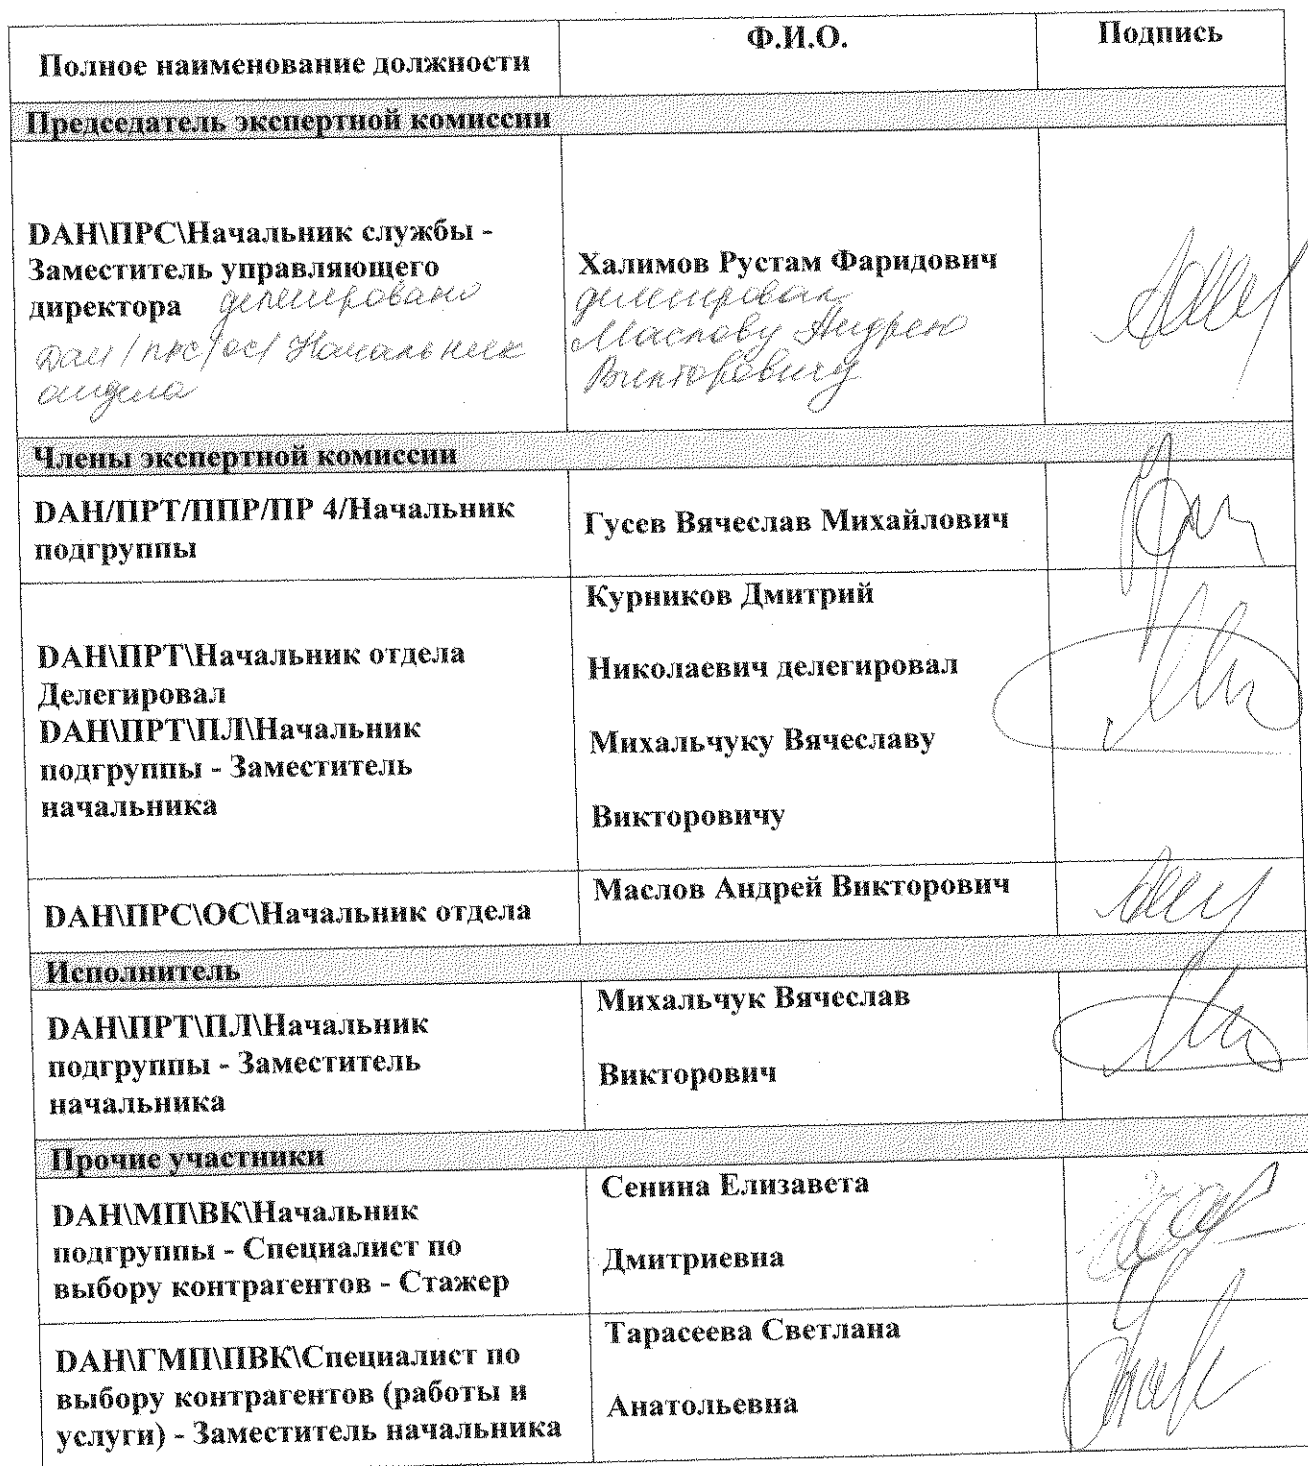 Полное наименование должности
Ф.И.О.
Подпись
Председатель экспертной комиссии
DAH\ПРС\Начальник службы -
Заместитель управляющего
директора делегировано
DAH/ПРС/ОС/ Начальник
отдела
Халимов Рустам Фаридович
делегировал
Маслову Андрею
Викторовичу
Члены экспертной комиссии
DAH/ПРТ/ППР/ПР 4/Начальник
подгруппы
Гусев Вячеслав Михайлович
DAH\ПРТ\Начальник отдела
Делегировал
DAH\ПРТ\ПЛ\Начальник
подгруппы - Заместитель
начальника
Курников Дмитрий
Николаевич делегировал
Михальчуку Вячеславу
Викторовичу
DAH\ПРС\ОС\Начальник отдела
Маслов Андрей Викторович
Исполнитель
DAH\ПРТ\ПЛ\Начальник
подгруппы - Заместитель
начальника
Михальчук Вячеслав
Викторович
Прочие участники
DAH\МП\ВК\Начальник
подгруппы - Специалист по
выбору контрагентов - Стажер
Сенина Елизавета
Дмитриевна
DAH\ГМП\ПВК\Специалист по
выбору контрагентов (работы и
услуги) - Заместитель начальника
Тарасеева Светлана
Анатольевна